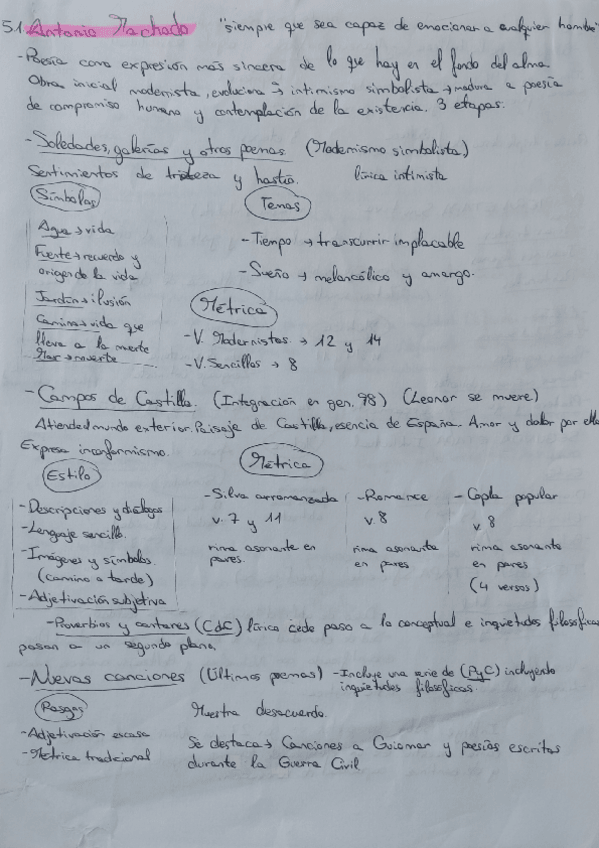 5.1. Antonio Machado "siempre que sea capaz de emocionar a cualquier hombre"
-Poesía como expresión más sincera de lo que hay en el fondo del alma
Obra inicial modernista, evoluciona → intimismo simbolista → madura a poesía
de compromiso humano y contemplación de la existencia. 3 etapas.
-Soledades, galerías y otros poemas. (Modernismo simbolista)
Sentimientos de tristeza y hastío. lírica intimista
Símbolos
Agua → vida
Fuente → recuerdo y
origen de la vida
Jardín → ilusión
Camino → vida que
lleva a la muerte
Mar → muerte
Temas
-Tiempo → transcurrir implacable
-Sueño → melancólico y amargo.
Métrica
-V. Modernistas → 12 y 14
-V. Sencillos → 8
-Campos de Castilla. (Integración en gen. 98) (Leonor se muere)
Atiende mundo exterior. Paisaje de Castilla, esencia de España. Amor y dolor por ella
Expresa inconformismo.
Estilo
-Descripciones y diálogos
-Lenguaje sencillo.
-Imágenes y símbolos.
(camino a tarde)
-Adjetivación subjetiva
Métrica
-Silva arromanzada
v. 7 y 11
rima asonante en
pares.
-Romance
v. 8
rima asonante
en pares
-Copla popular
v. 8
rima asonante
en pares
(4 versos)
-Proverbios y cantares (CdC) lírica cede paso a lo conceptual e inquietudes filosóficas
pasan a un segundo plano.
-Nuevas canciones (Últimos poemas) -Incluye una serie de (PyC) incluyento
inquietudes filosóficas
Rasgos
-Adjetivación escasa
-Métrica tradicional
Muestra desacuerdo.
Se destaca → Canciones a Guiomar y poesías escritas
durante la Guerra Civil